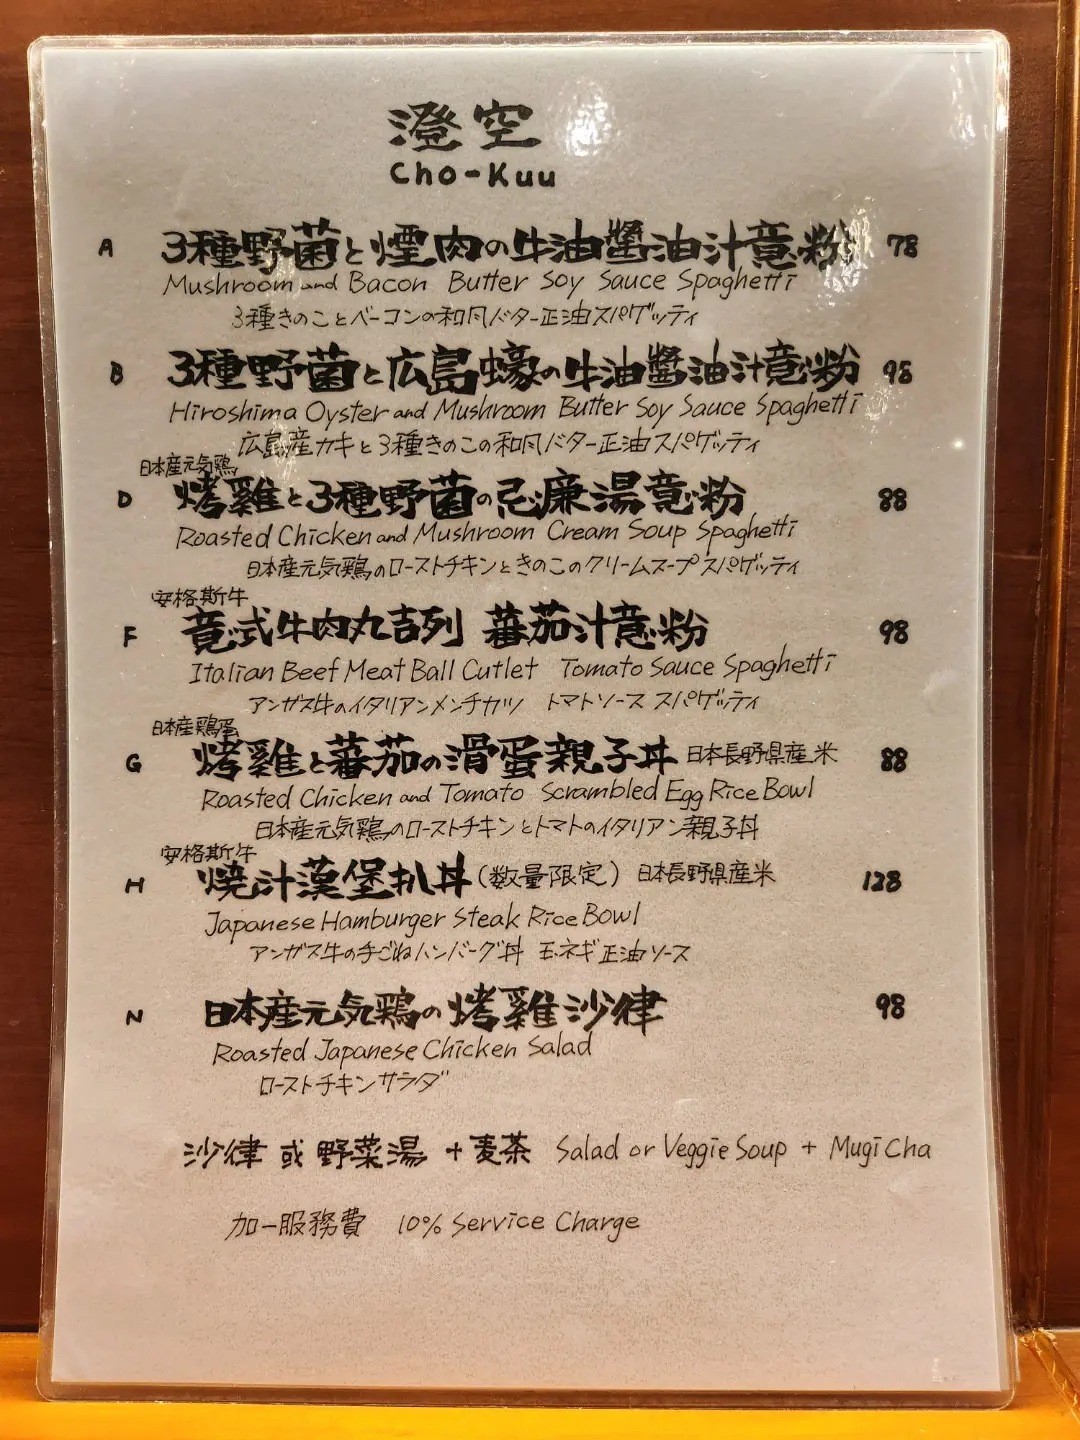 澄空
Cho-Kuu
A 3種野菌と煙肉の牛油醬油汁意粉 78
Mushroom and Bacon Butter Soy Sauce Spaghetti
3種きのことベーコンの和風バター正油スパゲッティ
B 3種野菌と広島蠔の牛油醬油汁意粉 98
Hiroshima Oyster and Mushroom Butter Soy Sauce Spaghetti
広島産カキと3種きのこの和風バター正油スパゲッティ
日本産元気鶏
D 烤雞と3種野菌の忌廉湯意粉 88
Roasted Chicken and Mushroom Cream Soup Spaghetti
日本産元気鶏のローストチキンときのこのクリームスープスパゲッティ
安格斯牛
F 意式牛肉丸吉列 蕃茄汁意粉 98
Italian Beef Meat Ball Cutlet Tomato Sauce Spaghetti
アンガス牛のイタリアンメンチカツ トマトソース スパゲッティ
日本産鶏蛋
G 烤雞と蕃茄の滑蛋親子丼 日本長野県産米 88
Roasted Chicken and Tomato Scrambled Egg Rice Bowl
日本産元気鶏のローストチキンとトマトのイタリアン親子丼
安格斯牛
H 燒汁漢堡扒丼(数量限定) 日本長野県産米 128
Japanese Hamburger Steak Rice Bowl
アンガス牛の手ごねハンバーグ丼 玉ネギ正油ソース
N 日本産元気鶏の烤雞沙律 98
Roasted Japanese Chicken Salad
ローストチキンサラダ
沙律 或 野菜湯 + 麦茶 Salad or Veggie Soup + Mugi Cha
加一服務費 10% Service Charge